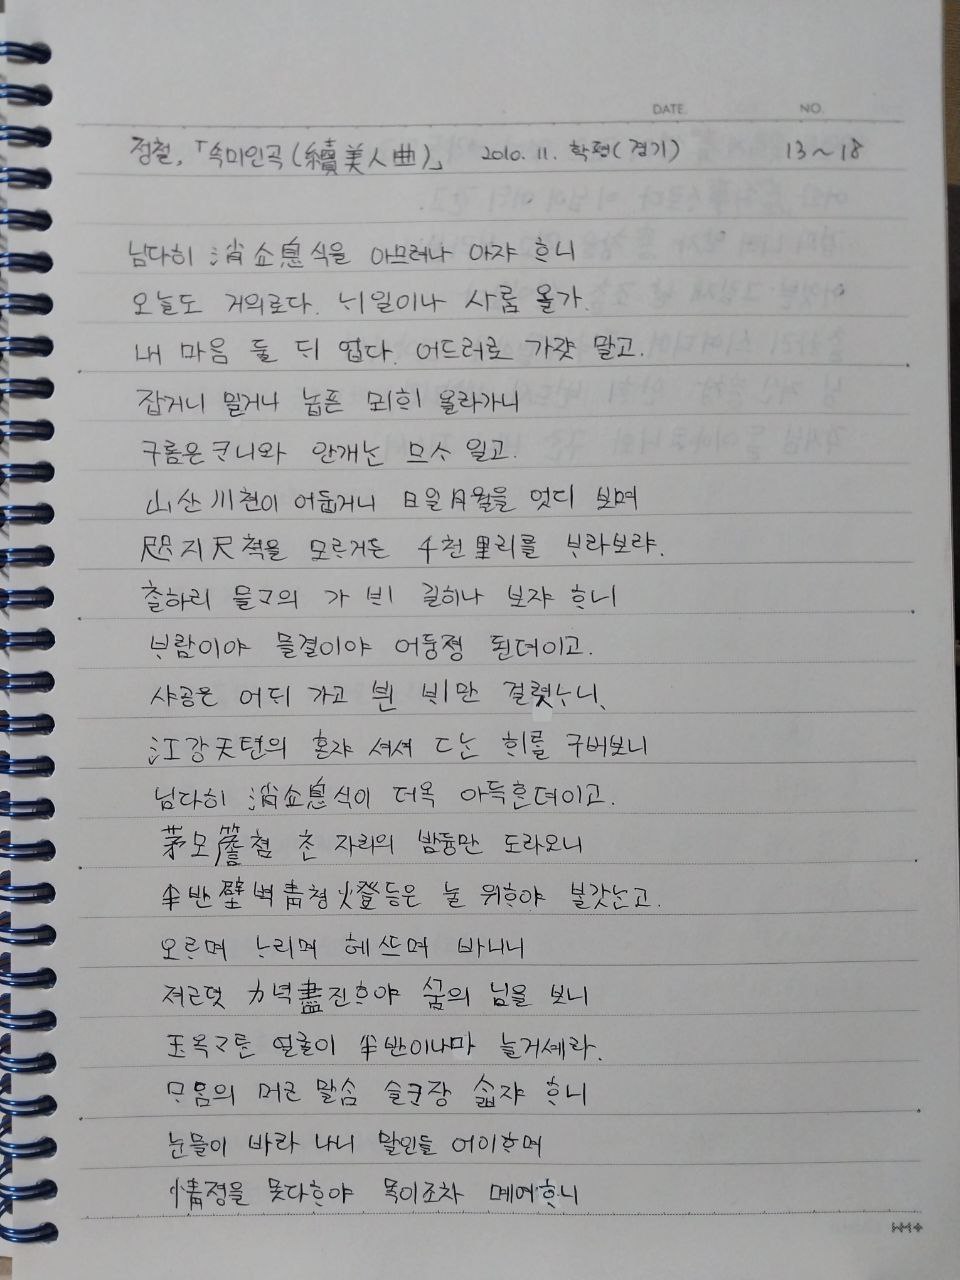 DATE NO.
정철, 「속미인곡(續美人曲)」 2010. 11. 학평(경기) 13~18
님다히 消소息식을 아므려나 아쟈 ᄒᆞ니
오ᄂᆞᆯ도 거의로다. ᄂᆡ일이나 사ᄅᆞᆷ 올가.
내 마음 둘 ᄃᆡ 업다. 어드러로 가쟛 말고.
잡거니 밀거니 놉픈 뫼ᄒᆡ 올라가니
구롬은ᄏᆞ니와 안개ᄂᆞᆫ 므ᄉᆞ 일고.
山산川쳔이 어둡거니 日일月월을 엇디 보며
咫지尺쳑을 모ᄅᆞ거든 千쳔里리를 ᄇᆞ라보랴.
ᄎᆞᆯ하리 믈ᄀᆞ의 가 ᄇᆡ 길히나 보쟈 ᄒᆞ니
ᄇᆞ람이야 믈결이야 어둥졍 된뎌이고.
샤공은 어ᄃᆡ 가고 븬 ᄇᆡ만 걸렷ᄂᆞ니.
江강天텬의 혼쟈 셔셔 디ᄂᆞᆫ ᄒᆡ를 구버보니
님다히 消쇼息식이 더옥 아득ᄒᆞᆫ뎌이고.
茅모簷쳠 ᄎᆞᆫ 자리의 밤듕만 도라오니
半반壁벽靑청燈등은 눌 위ᄒᆞ야 ᄇᆞᆯ갓ᄂᆞᆫ고.
오ᄅᆞ며 ᄂᆞ리며 헤ᄯᅳ며 바니니
져근덧 力녁盡진ᄒᆞ야 ᄭᅮᆷ의 님을 보니
玉옥 ᄀᆞᄐᆞᆫ 얼굴이 半반이나마 늘거셰라.
ᄆᆞᄋᆞᆷ의 머근 말ᄉᆞᆷ 슬ᄏᆞ장 ᄉᆞᆲ쟈 ᄒᆞ니
눈믈이 바라 나니 말인들 어이ᄒᆞ며
情졍을 못다ᄒᆞ야 목이조차 몌여ᄒᆞ니